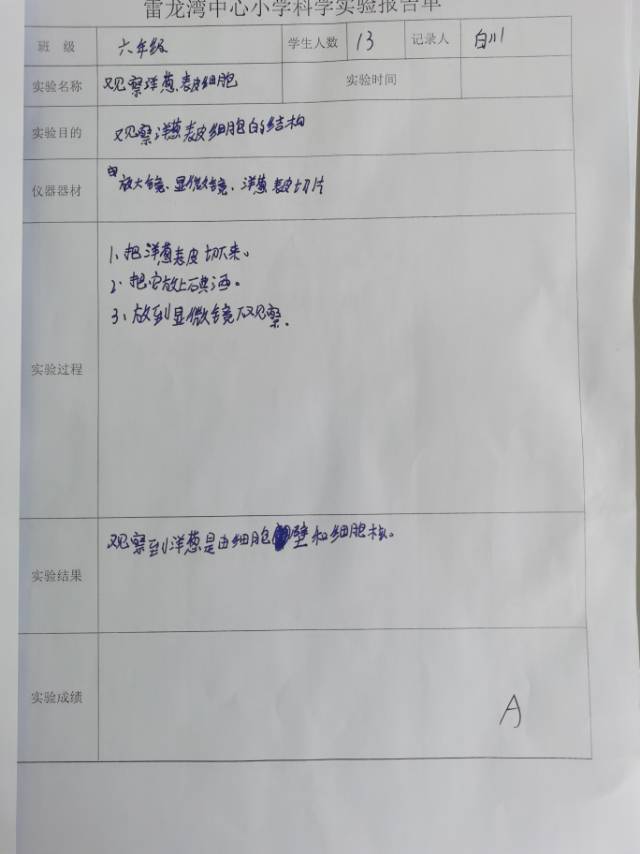 雷龙湾中心小学科学实验报告单
班 级 六年级 学生人数 13 记录人 白川
实验名称 观察洋葱表皮细胞 实验时间
实验目的 观察洋葱表皮细胞的结构
仪器器材 放大镜、显微镜、洋葱表皮切片
实验过程
1、把洋葱表皮切下来。
2、把它放上碘酒。
3、放到显微镜下观察.
实验结果 观察到洋葱是由细胞壁和细胞核。
实验成绩 A